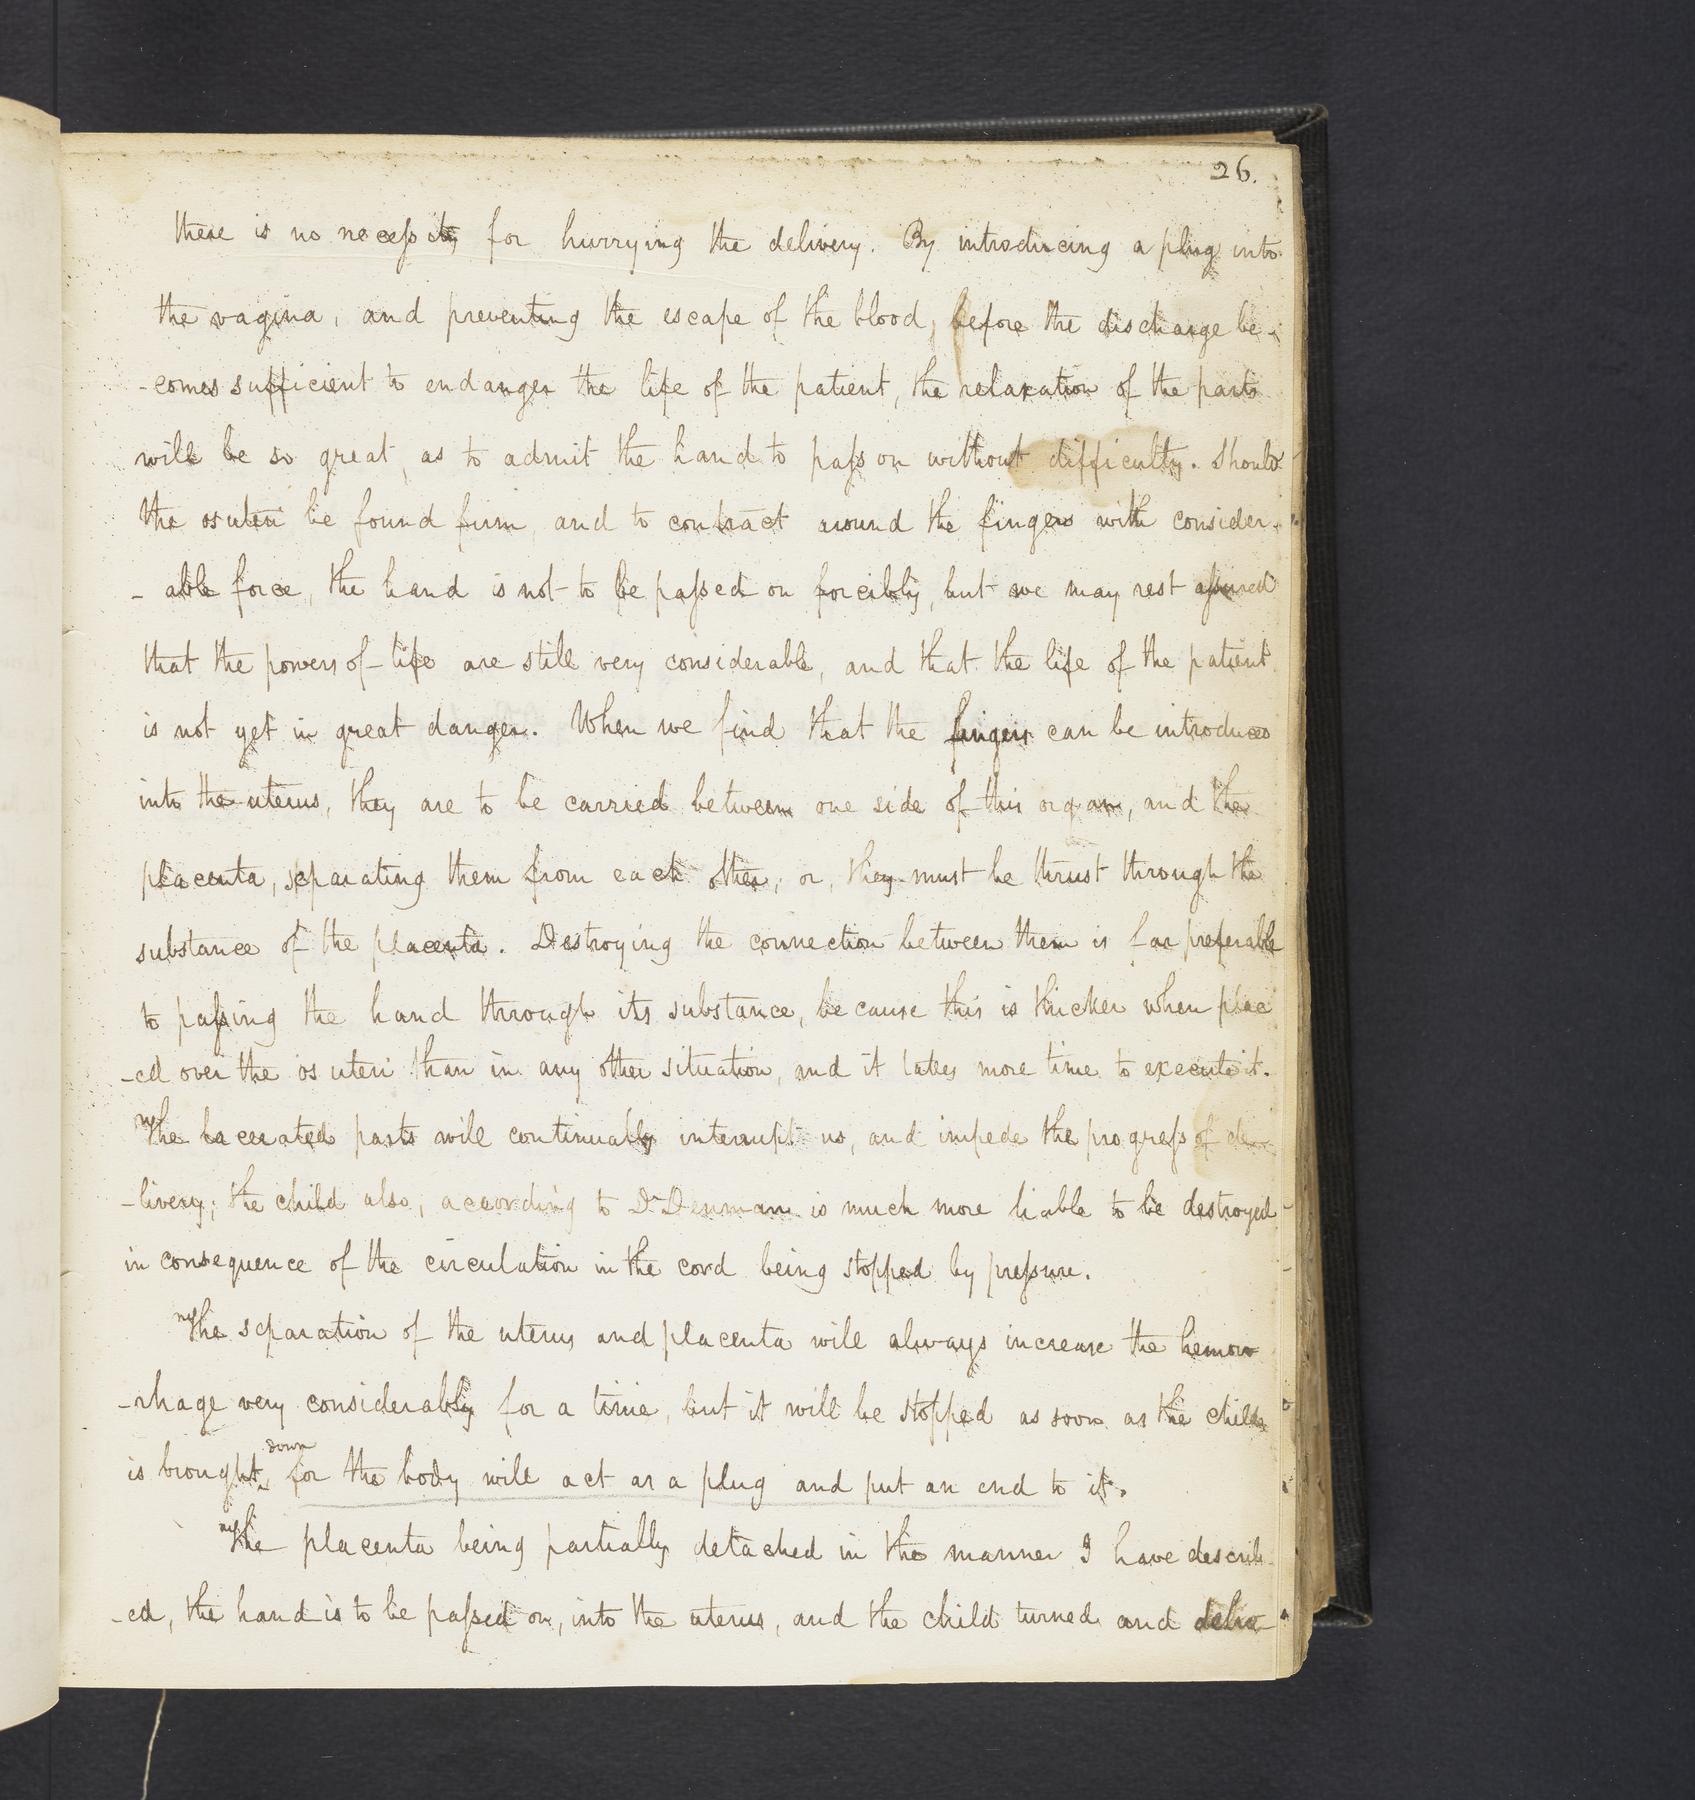 26.
there is no necessity for hurrying the delivery. By introducing a plug into
the vagina, and preventing the escape of the blood, before the discharge be-
-comes sufficient to endanger the life of the patient, the relaxation of the parts
will be so great, as to admit the hand to pass on without difficulty. Should
the os uteri be found firm, and to contract around the fingers with consider-
-able force, the hand is not to be passed on forcibly, but we may rest assured
that the powers of life are still very considerable, and that the life of the patient
is not yet in great danger. When we find that the fingers can be introduced
into the uterus, they are to be carried between one side of this organ, and the
placenta, separating them from each other, or, they must be thrust through the
substance of the placenta. Destroying the connection between them is far preferable
to passing the hand through its substance, because this is thicker when plac
-ed over the os uteri than in any other situation, and it takes more time to execute it.
The lacerated parts will continually interrupt us, and impede the progress of de-
-livery; the child also, according to Dr Denman is much more liable to be destroyed
in consequence of the circulation in the cord being stopped by pressure.
The separation of the uterus and placenta will always increase the hemor
-rhage very considerably for a time, but it will be stopped as soon as the child
is brought down for the body will act as a plug and put an end to it.
The placenta being partially detached in the manner I have describ
-ed, the hand is to be passed on, into the uterus, and the child turned and deliv-